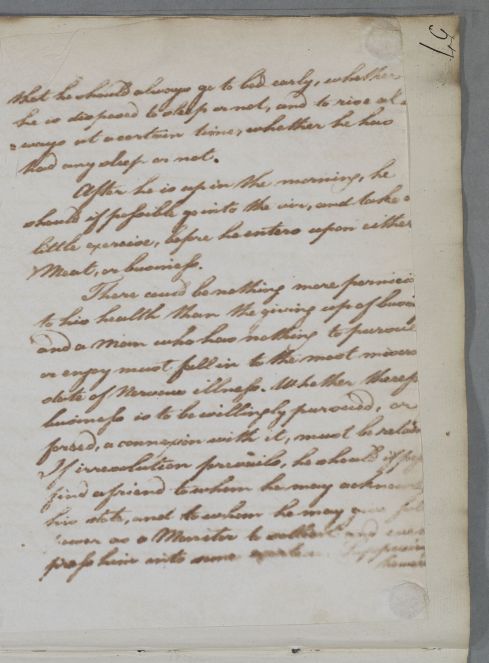 51
that he should always go to bed early, whether
he is disposed to sleep or not, and to rise al
= ways at a certain time, whether he has
had any sleep or not.
After he is up in the morning, he
should if possible go into the air, and take a
little exercise, before he enters upon either
Meat, or business.
There could be nothing more pernicio
to his health than the giving up of busi
and a Man who has nothing to pursue
or enjoy must fall in to the most misera
state of Nervous illness. Whether theref
business is to be willingly pursued, or
forced, a connexion with it, must be retain
If irresolution prevails, he should if po
find a friend to whom he may acknow
his state, and to whom he may give
power as a Monitor to and
press him into some